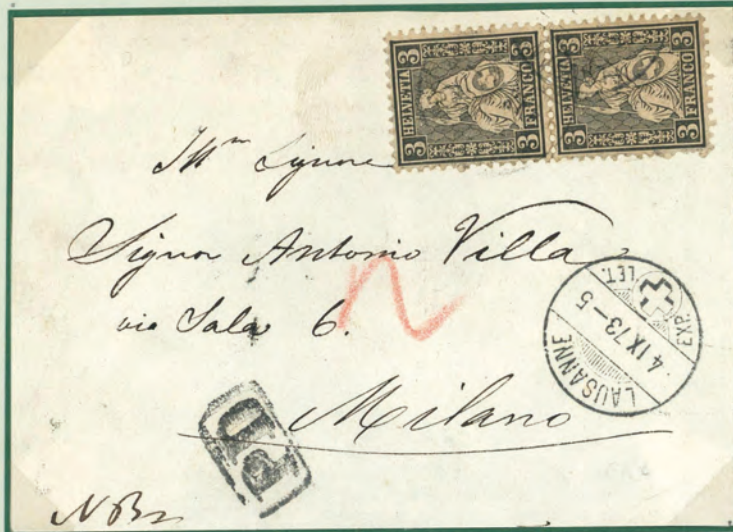 3 HELVETIA 3
3 FRANCO 3
3 HELVETIA 3
3 FRANCO 3
Ill<sup>m</sup> Signore
Signor Antonio Villa
via Sala 6.
Milano
PD
LAUSANNE
4 IX 73–5
EXP. LET.